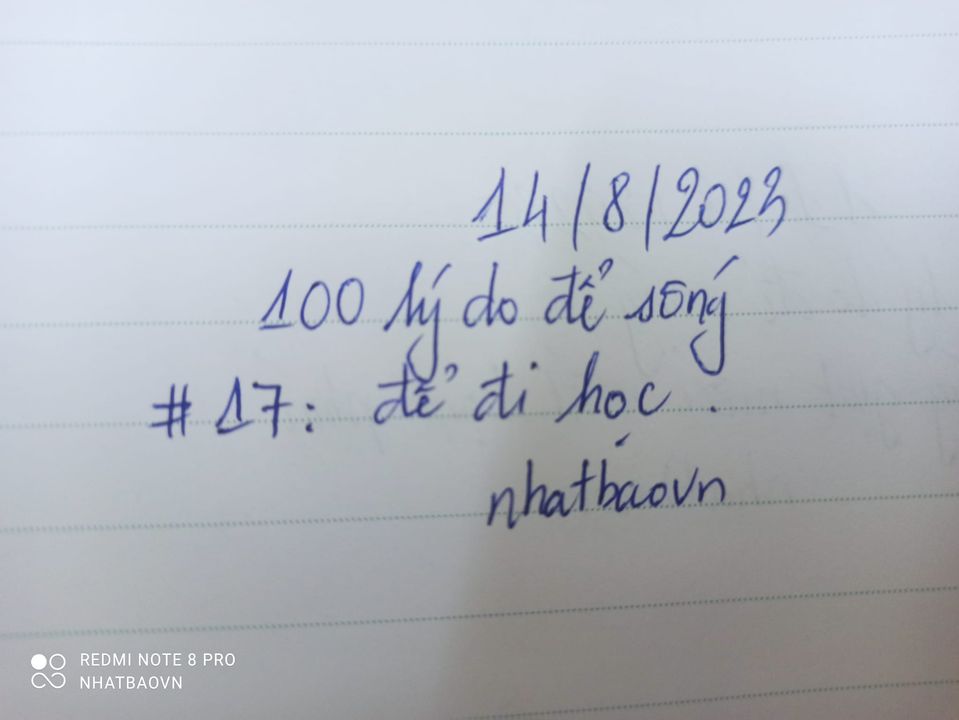 14/8/2023
100 lý do để sống
#17: để đi học.
nhatbaovn
REDMI NOTE 8 PRO
NHATBAOVN